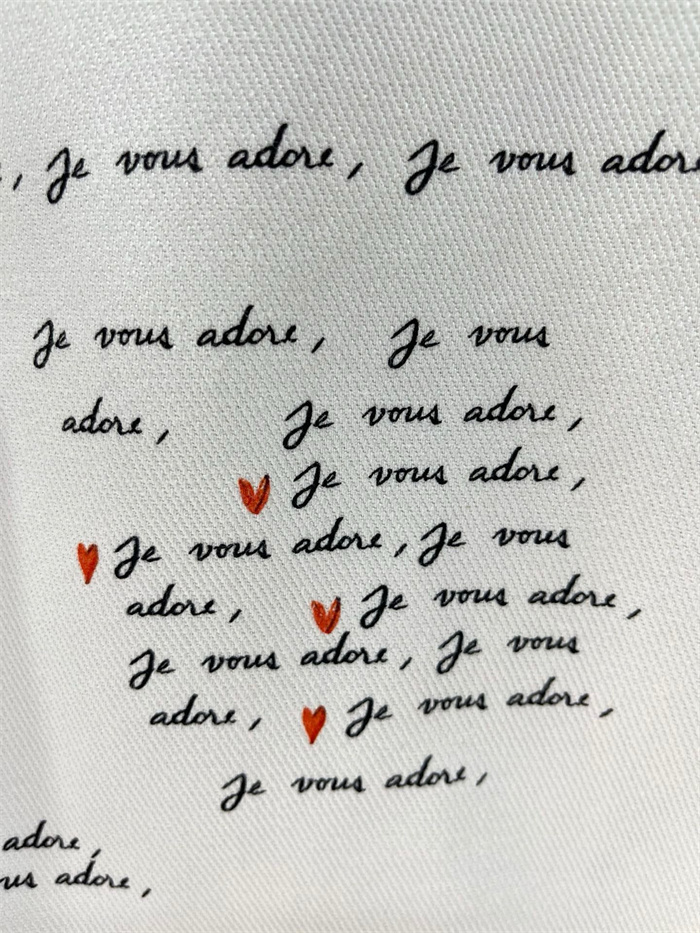 , Je vous adore, Je vous adore
Je vous adore, Je vous
adore, Je vous adore,
Je vous adore,
Je vous adore, Je vous
adore, Je vous adore,
Je vous adore, Je vous
adore, Je vous adore,
Je vous adore,
adore,
us adore,